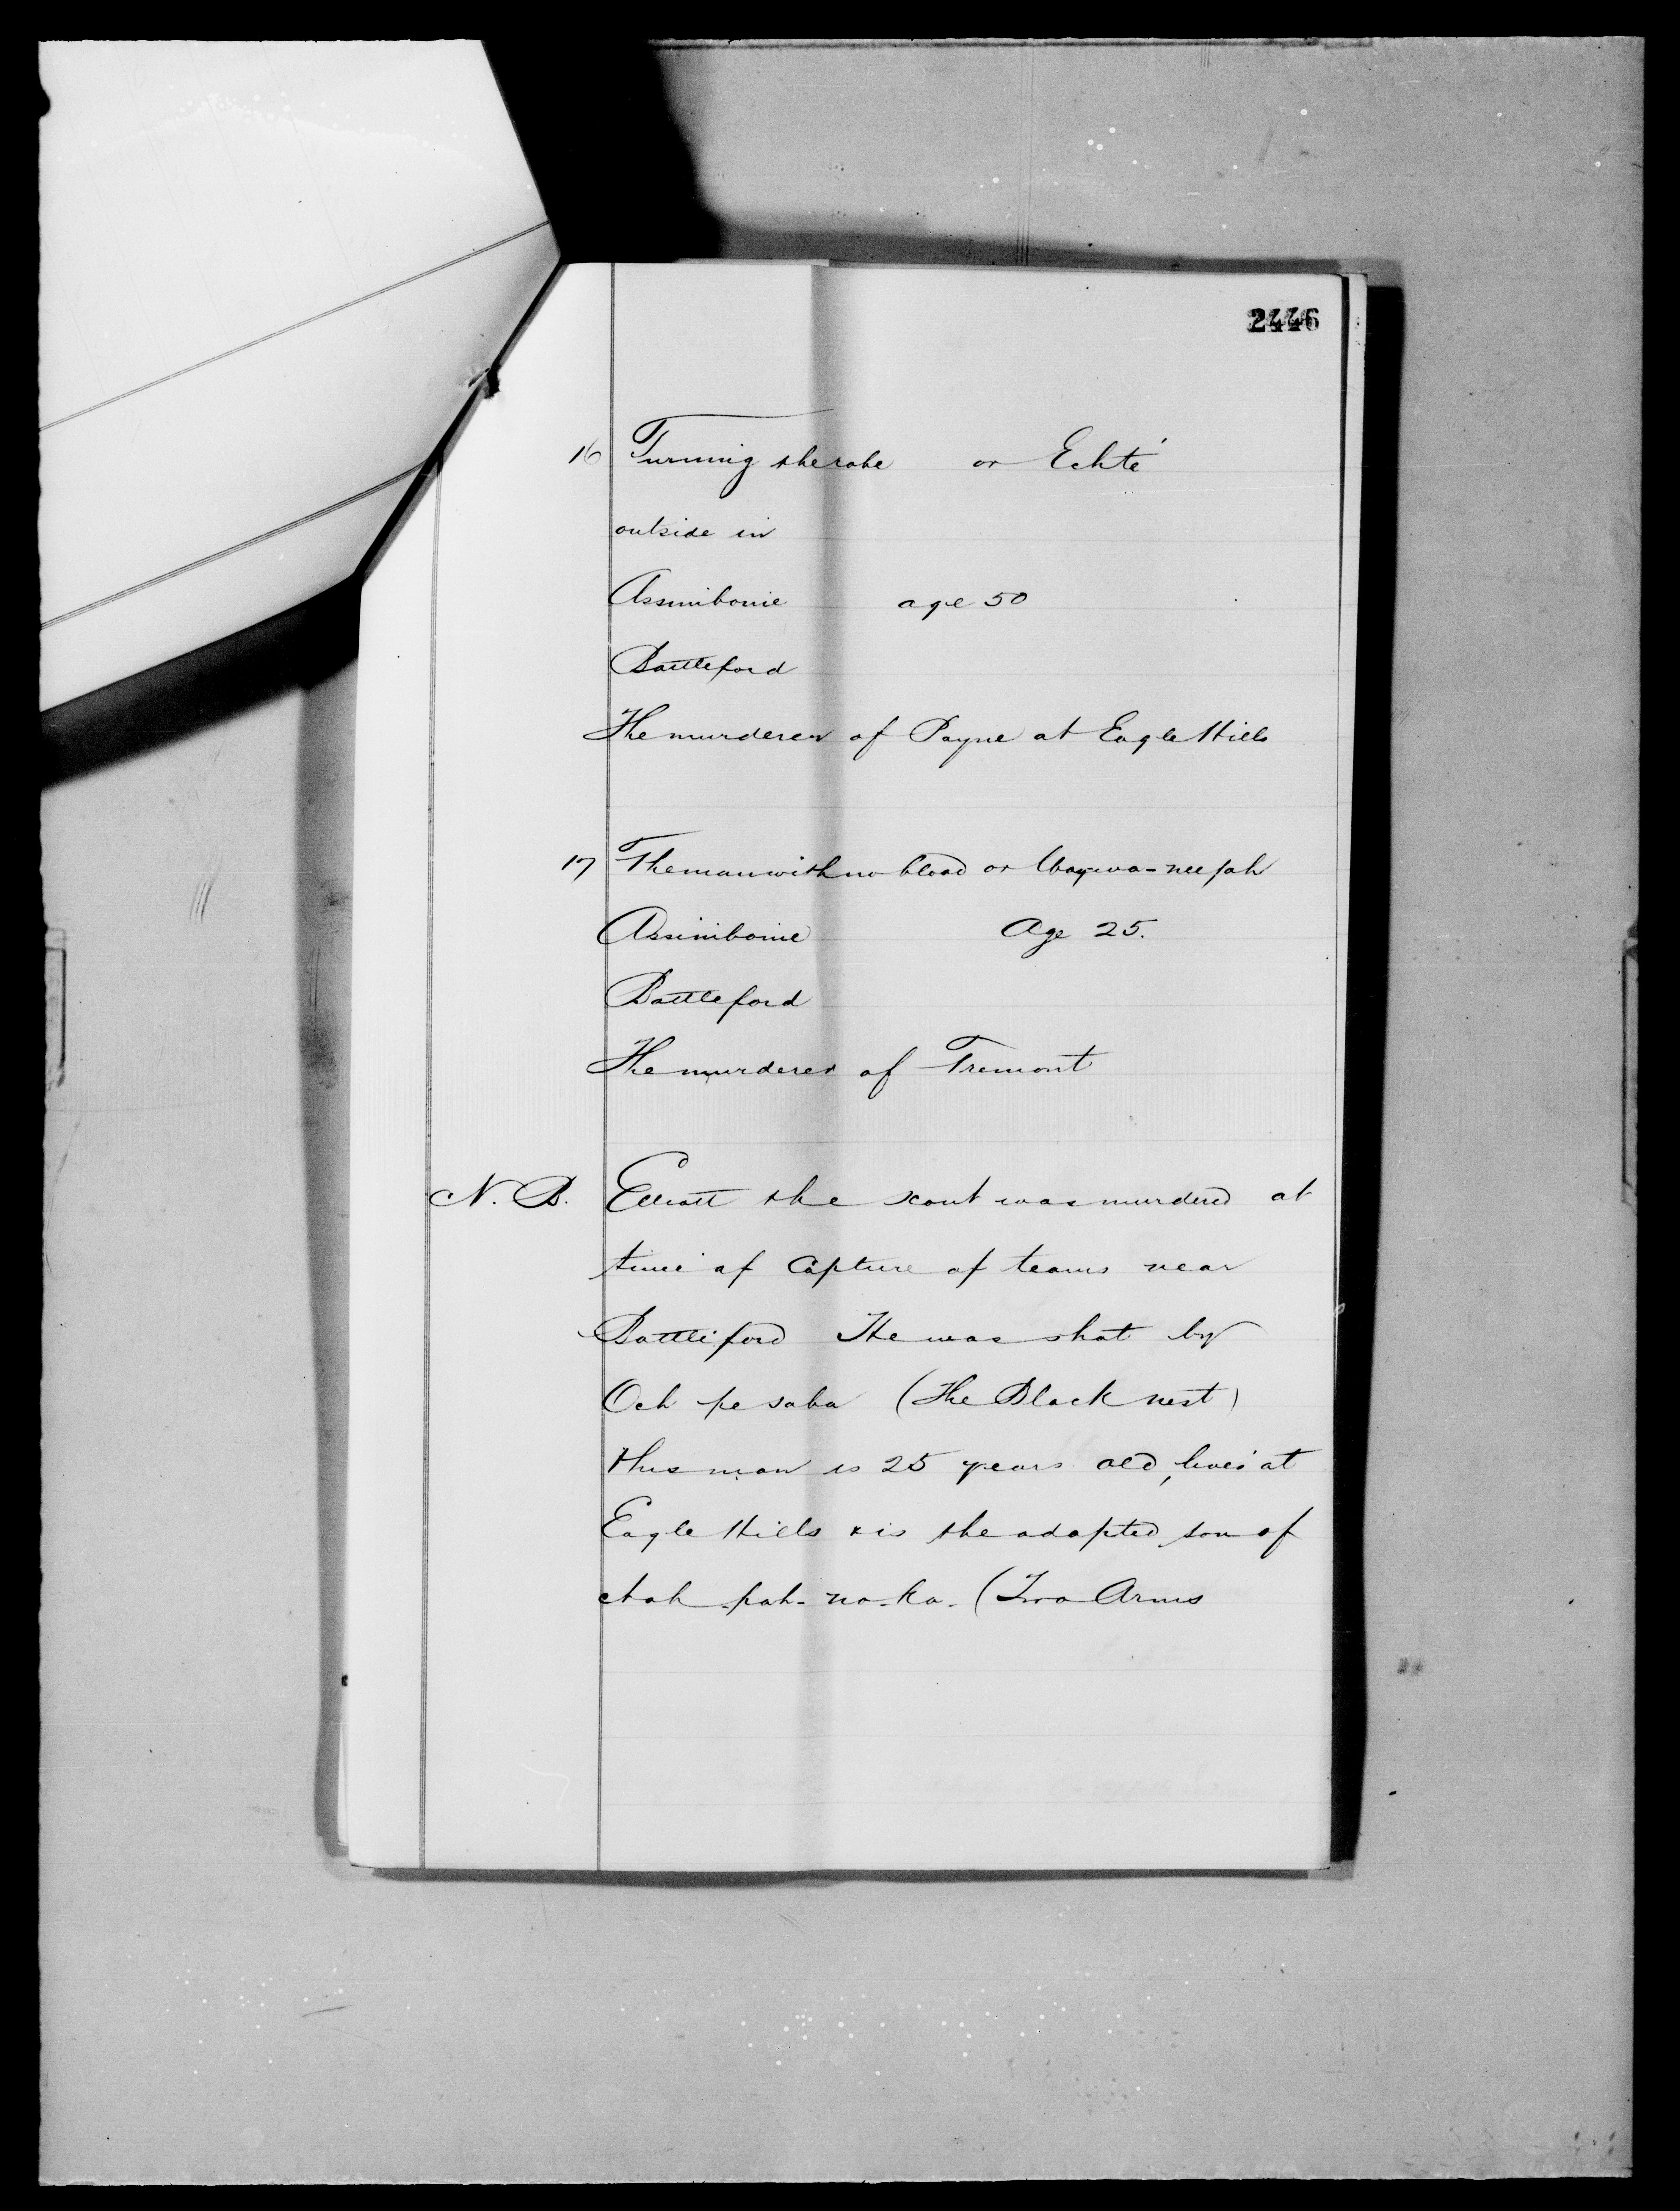 2446
16 Turning the robe or Echté
outside in
Assiniboine age 50
Battleford
The murderer of Payne at Eagle Hills
17 The man with no blood or
Assiniboine Age 25.
Battleford
The murderer of Tremont
N. B. Elliott the scout was murdered at
time of Capture of teams near
Battleford He was shot by
Och pe saba (The Black nest)
this man is 25 years old, lives at
Eagle Hills & is the adopted son of
pah-no-ka. (Two Arms